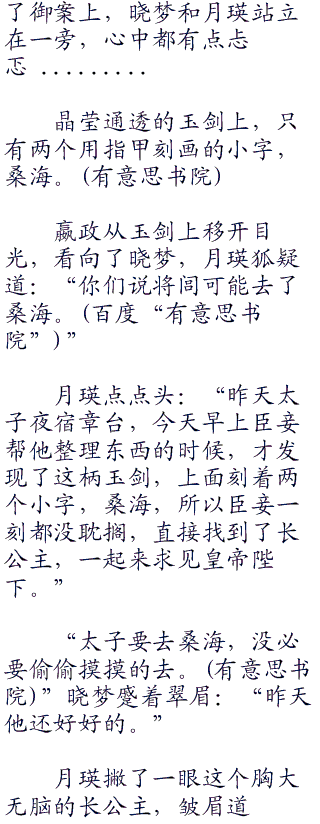 了御案上，晓梦和月瑛站立
在一旁，心中都有点忐
忑 .........
晶莹通透的玉剑上，只
有两个用指甲刻画的小字，
桑海。(有意思书院)
嬴政从玉剑上移开目
光，看向了晓梦，月瑛狐疑
道：“你们说将闾可能去了
桑海。(百度“有意思书
院”)”
月瑛点点头：“昨天太
子夜宿章台，今天早上臣妾
帮他整理东西的时候，才发
现了这柄玉剑，上面刻着两
个小字，桑海，所以臣妾一
刻都没耽搁，直接找到了长
公主，一起来求见皇帝陛
下。”
“太子要去桑海，没必
要偷偷摸摸的去。(有意思书
院)”晓梦蹙着翠眉：“昨天
他还好好的。”
月瑛撇了一眼这个胸大
无脑的长公主，皱眉道